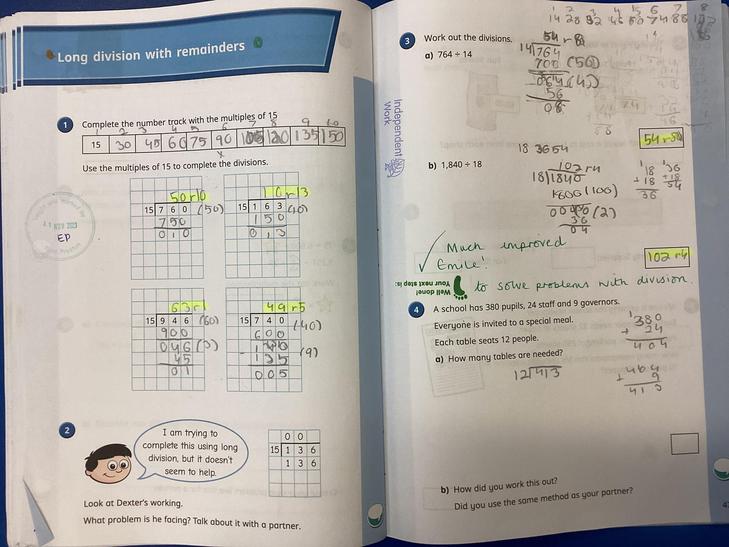 Long division with remainders
1 Complete the number track with the multiples of 15
1 2 3 4 5 6 7 8 9 10
15 30 45 60 75 90 105 120 135 150
Use the multiples of 15 to complete the divisions.
50r10
15 7 6 0 (50)
7 5 0
0 1 0
10r13
15 1 6 3 (10)
1 5 0
0 1 3
EP
63r1
15 9 4 6 (60)
9 0 0
0 4 6 (3)
4 5
0 1
49r5
15 7 4 0 (40)
6 0 0
1 4 0 (9)
- 1 3 5
0 0 5
2
I am trying to
complete this using long
division, but it doesn't
seem to help.
0 0
15 1 3 6
1 3 6
Look at Dexter's working.
What problem is he facing? Talk about it with a partner.
1 2 3 4 5 6 7 8
14 28
3 Work out the divisions.
a) 764 ÷ 14
54 r 8
14 764
700 (50)
064 (4)
56
08
Independent
Work
54 r
18 36 54
b) 1,840 ÷ 18
102 r4
18 1840
1800 (100)
(2)
36
04
18
+ 18
36
36
+ 18
54
102 r4
Much improved
Emile!
Well done!
Your next step is:
to solve problems with division.
4 A school has 380 pupils, 24 staff and 9 governors.
Everyone is invited to a special meal.
Each table seats 12 people.
a) How many tables are needed?
12 413
380
+ 24
404
404
+ 9
413
b) How did you work this out?
Did you use the same method as your partner?